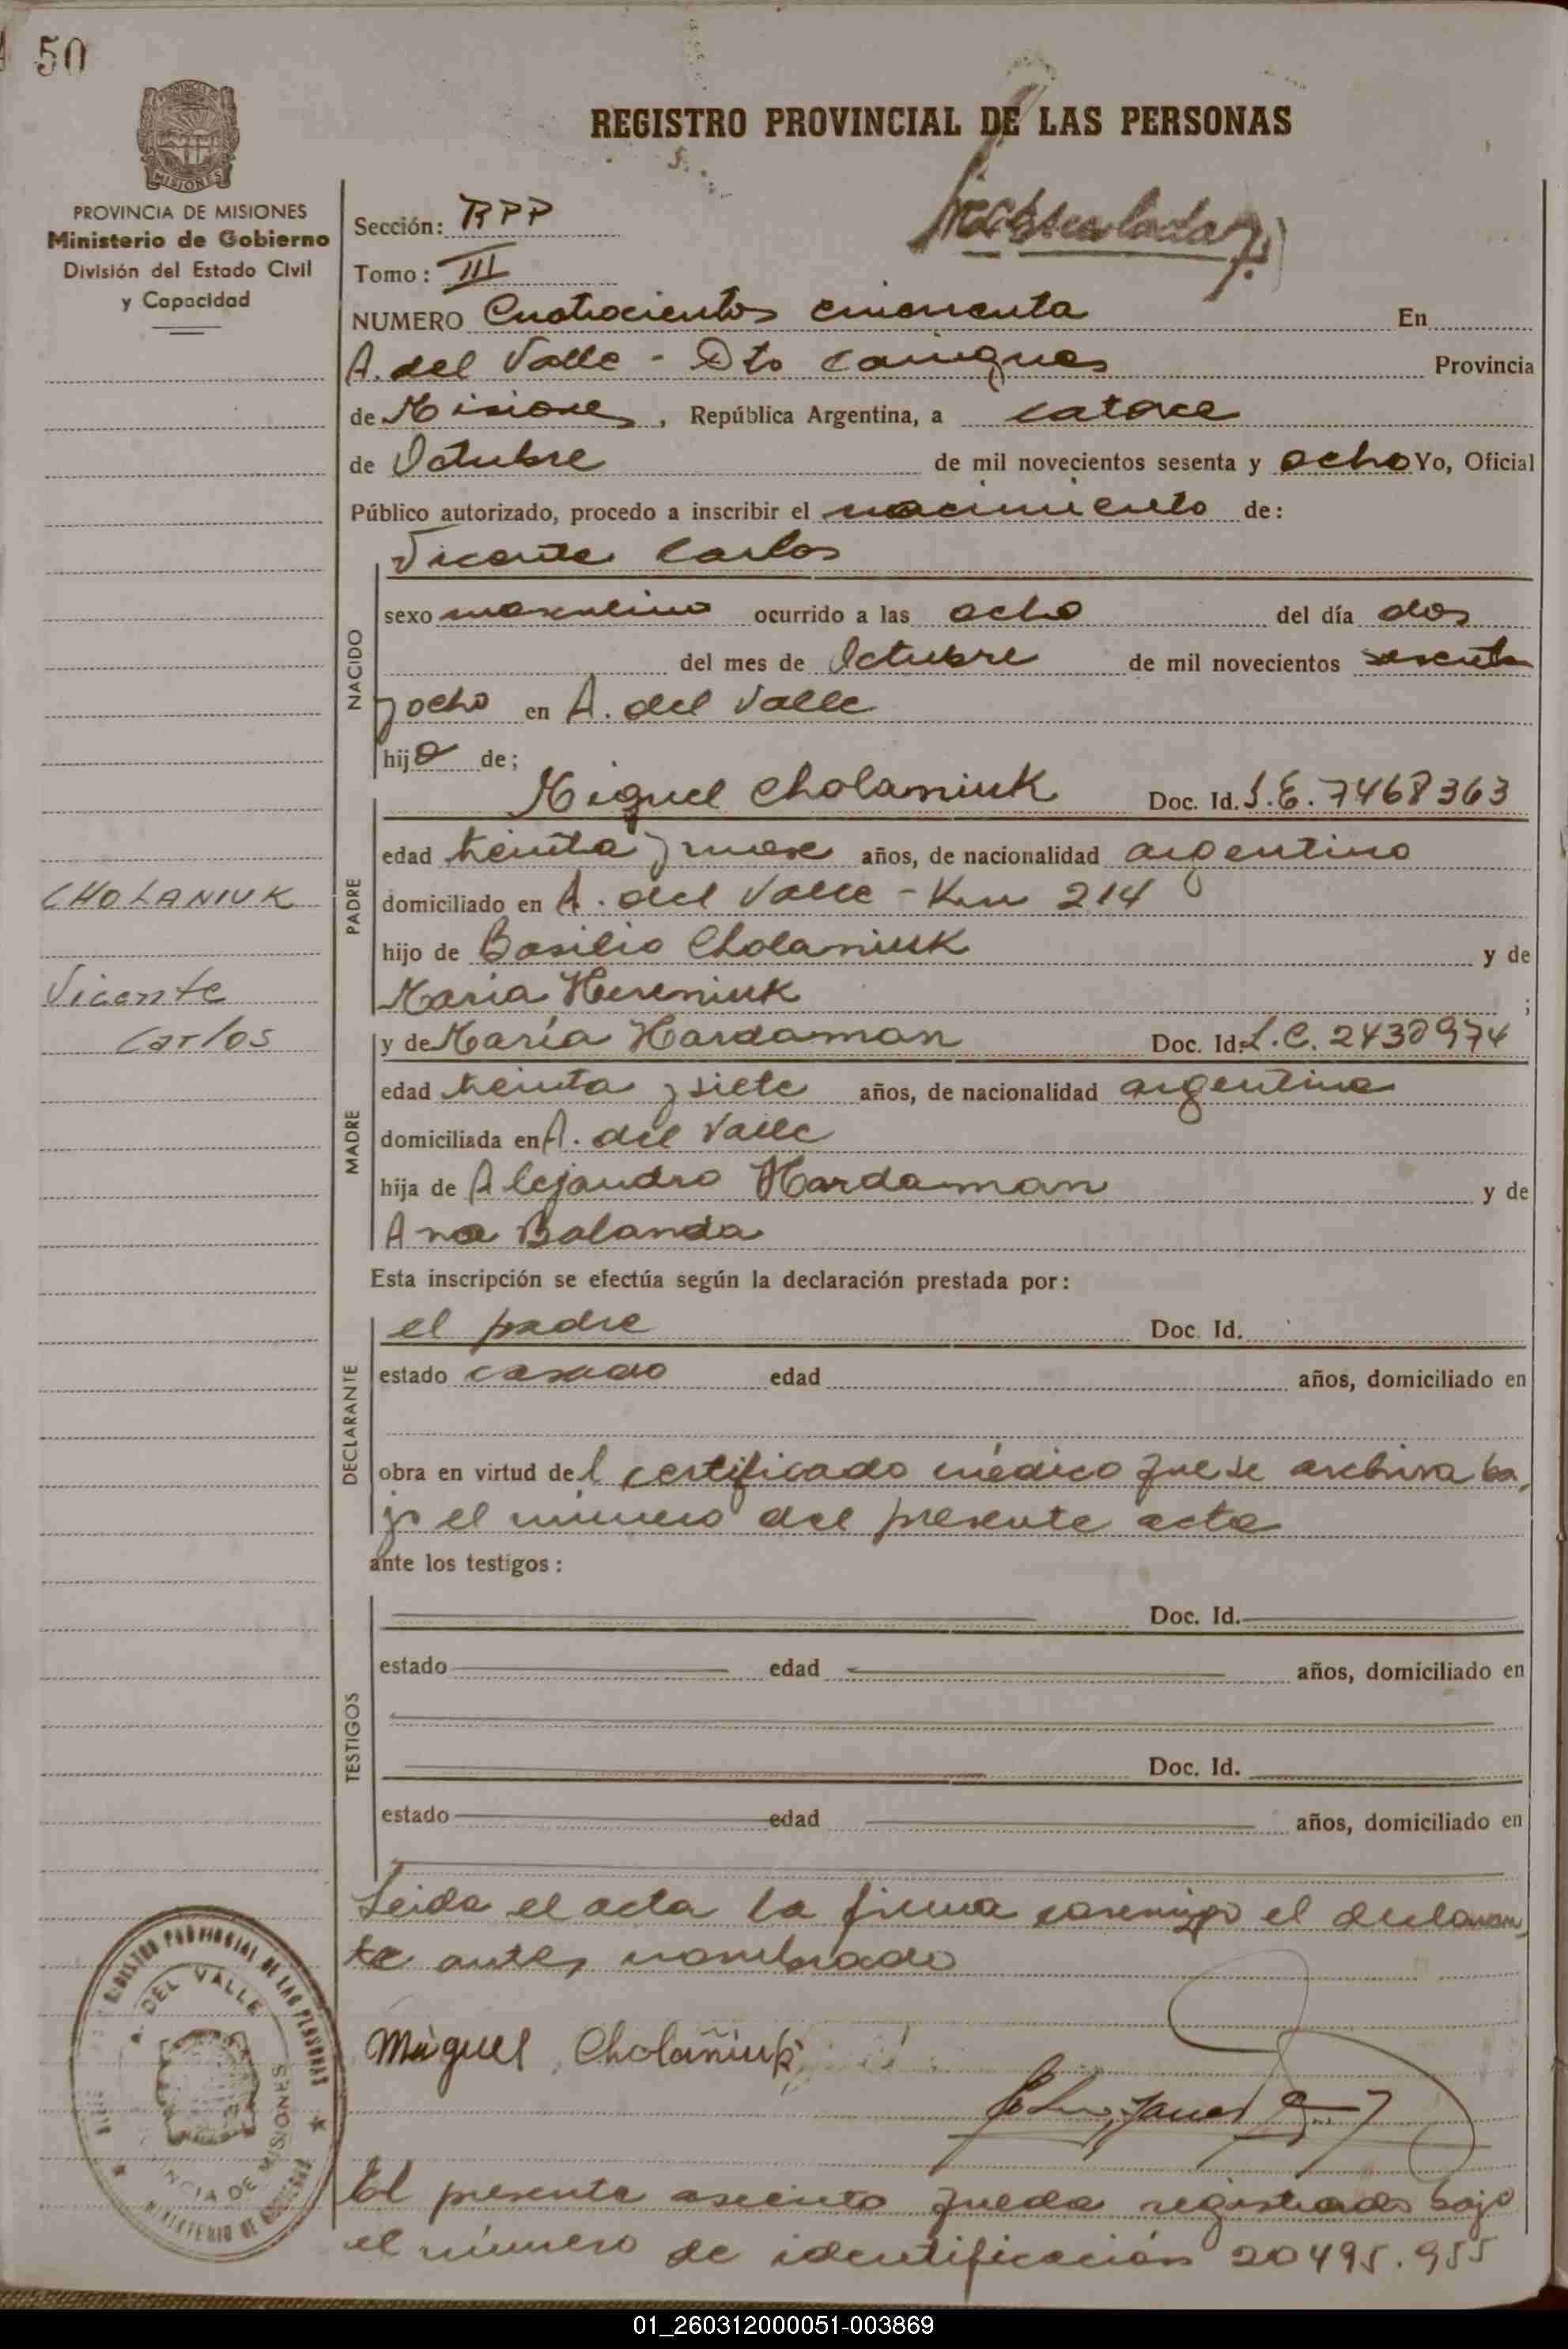 50
MISIONES
PROVINCIA DE MISIONES
Ministerio de Gobierno
División del Estado Civil
y Capacidad
REGISTRO PROVINCIAL DE LAS PERSONAS
Sección: RPP
Tomo: III
NUMERO Cuatrocientos cincuenta En
A. del Valle - Dto Cainguas Provincia
de Misiones, República Argentina, a catorce
de Octubre de mil novecientos sesenta y ocho Yo, Oficial
Público autorizado, procedo a inscribir el nacimiento de:
Vicente Carlos
NACIDO
sexo masculino ocurrido a las ocho del día dos
del mes de Octubre de mil novecientos sesenta
y ocho en A. del Valle
hijo de;
Miguel Cholaniuk Doc. Id. L.E. 7468363
PADRE
edad treinta y nueve años, de nacionalidad argentino
domiciliado en A. del Valle - Km 214
hijo de Basilio Cholaniuk y de
María Hereniuk ;
CHOLANIUK
Vicente
Carlos
y de María Hardaman Doc. Id. L.C. 2430974
MADRE
edad treinta y siete años, de nacionalidad argentina
domiciliada en A. del Valle
hija de Alejandro Hardaman y de
Ana Balanda
Esta inscripción se efectúa según la declaración prestada por:
DECLARANTE
el padre Doc. Id.
estado casado edad años, domiciliado en
obra en virtud del certificado médico que se archiva ba
jo el número del presente acta
ante los testigos:
TESTIGOS
Doc. Id.
estado edad años, domiciliado en
Doc. Id.
estado edad años, domiciliado en
Leida el acta la firma conmigo el declaran
te antes nombrado
Miguel Cholañiuk
REGISTRO PROVINCIAL DE LAS PERSONAS
A. DEL VALLE
PROVINCIA DE MISIONES
MINISTERIO DE GOBIERNO
El presente asiento queda registrado bajo
el número de identificación 20495.955
01_260312000051-003869